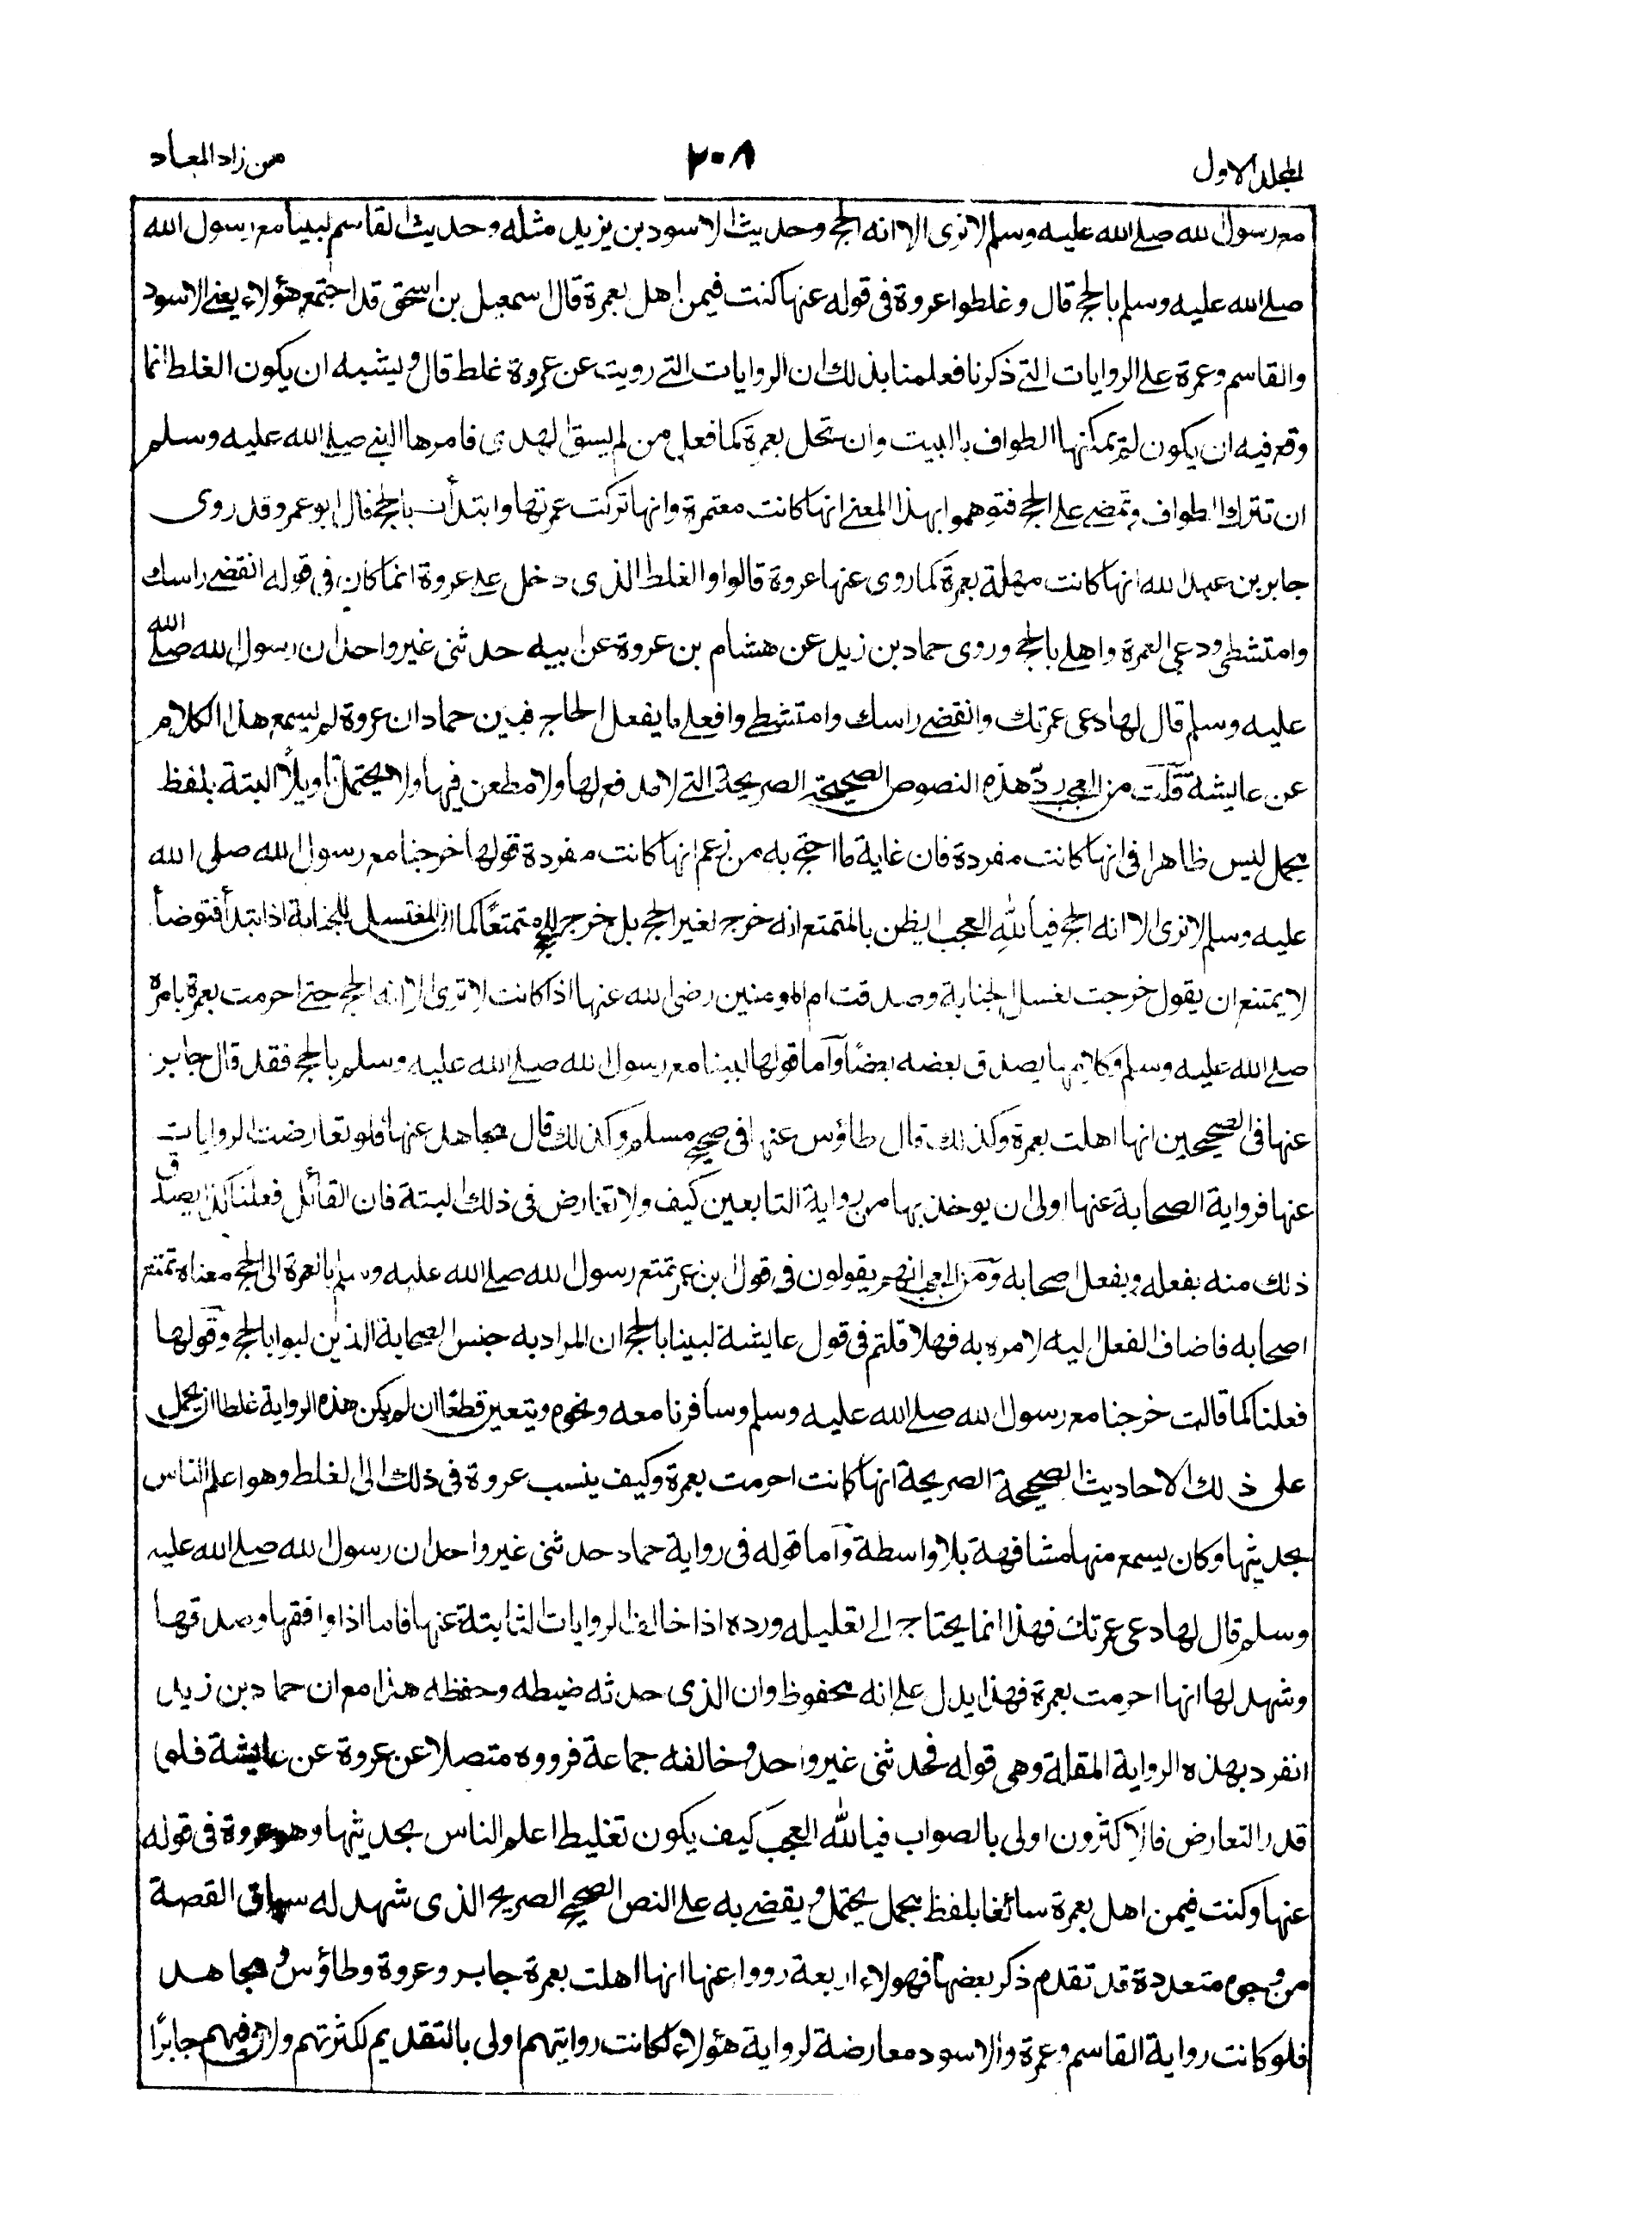 المجلد الاول
٢٠٨
من زاد المعاد
مع رسول الله صلے الله عليه وسلم لا نرى الا انه الحج وحديث الاسود بن يزيد مثله وحديث القاسم لبينا مع رسول الله
صلے الله عليه وسلم بالحج قال وغلطوا عروة فى قوله عنها كنت فيمن اهل بعمرة قال اسمعيل بن اسحق قد اجتمع هؤلاء يعنے الاسود
والقاسم وعمرة علے الروايات التے ذكرنا فعلمنا بذلك ان الروايات التے رويت عن عروة غلط قال ويشبه ان يكون الغلط انما
وقع فيه ان يكون لم يمكنها الطواف بالبيت وان تحل بعمرة كما فعل من لم يسق الهدى فامرها النبے صلے الله عليه وسلم
ان تترك الطواف وتمضے علے الحج فتوهموا بهذا المعنے انها كانت معتمرة وانها تركت عمرتها وابتدأت بالحج قال ابو عمر وقد روى
جابر بن عبد الله انها كانت مهلة بعمرة كما روى عنها عروة قالوا والغلط الذى دخل علے عروة انما كان فى قوله انقضے راسك
وامتشطى ودعى العمرة واهلے بالحج وروى حماد بن زيد عن هشام بن عروة عن ابيه حدثنى غير واحد ان رسول الله صلے الله
عليه وسلم قال لها دعى عمرتك وانقضے راسك وامتشطے وافعلے ما يفعل الحاج فبين حماد ان عروة لم يسمع هذا الكلام
عن عايشة قلت من العجب ردّ هذه النصوص الصحيحة الصريحة التے لا مدفع لها ولا مطعن فيها ولا يحتمل تاويلاً البتة بلفظ
مجمل ليس ظاهرا فى انها كانت مفردة فان غاية ما احتج به من زعم انها كانت مفردة قولها خرجنا مع رسول الله صلى الله
عليه وسلم لا نرى الا انه الحج فيا لله العجب ايظن بالمتمتع انه خرج لغير الحج بل خرج للحج متمتعًا كما ان المغتسل للجنابة اذا بتدأ فتوضأ
لا يمتنع ان يقول خرجت لغسل الجنابة وصدقت ام المومنين رضى الله عنها اذا كانت لا ترى الا انه الحج حتے احرمت بعمرة بامره
صلے الله عليه وسلم وكلامها يصدق بعضه بعضًا وآما قولها لبينا مع رسول الله صلے الله عليه وسلم بالحج فقد قال جابر
عنها فى الصحيحين انها اهلت بعمرة وكذلك قال طاؤس عنها فى صحيح مسلم وكذلك قال مجاهد عنها فلو تعارضت الروايات
عنها فرواية الصحابة عنها اولى ان يوخذ بها من رواية التابعين كيف ولا تعارض فى ذلك البتة فان القائل فعلنا كذا يصدق
ذلك منه بفعله وبفعل اصحابه ومن العجب انهم يقولون فى قول بن عمر تمتع رسول الله صلے الله عليه وسلم بالعمرة الى الحج معناه تمتع
اصحابه فاضاف الفعل اليه لامره به فهلا قلتم فى قول عايشة لبينا بالحج ان المراد به جنس الصحابة الذين لبوا بالحج وقولها
فعلنا كما قالت خرجنا مع رسول الله صلے الله عليه وسلم وسافرنا معه ونحوه ويتعين قطعًا ان لم يكن هذه الرواية غلطا ان يحمل
على ذلك الاحاديث الصحيحة الصريحة انها كانت احرمت بعمرة وكيف ينسب عروة فى ذلك الى الغلط وهو اعلم الناس
بحديثها وكان يسمع منها مشافهة بلا واسطة وآما قوله فى رواية حماد حدثنى غير واحد ان رسول الله صلے الله عليه
وسلم قال لها دعى عمرتك فهذا انما يحتاج الے تعليله ورده اذا خالف الروايات الثابتة عنها فاما اذا وافقها وصدقها
وشهد لها انها احرمت بعمرة فهذا يدل علے انه محفوظ وان الذى حدثه ضبطه وحفظه هذا مع ان حماد بن زيد
انفرد بهذه الرواية المقلة وهى قوله فحدثنى غير واحد وخالفه جماعة فرووه متصلا عن عروة عن عايشة فلو
قدر التعارض فالاكثرون اولى بالصواب فيا لله العجب كيف يكون تغليط اعلم الناس بحديثها وهو عروة فى قوله
عنها وكنت فيمن اهل بعمرة سائغا بلفظ مجمل يحتمل ويقضے به علے النص الصحيح الصريح الذى شهد له سياق القصة
من وجوه متعددة قد تقدم ذكر بعضها فهولاء اربعة رووا عنها انها اهلت بعمرة جابر وعروة وطاؤس ومجاهد
فلو كانت رواية القاسم وعمرة والاسود معارضة لرواية هؤلاء لكانت روايتهم اولى بالتقديم لكثرتهم ولان فيهم جابرًا